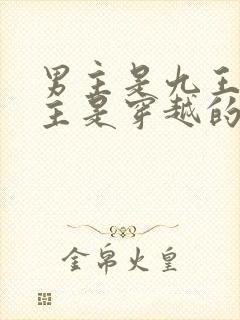 男主是九王
主是穿越的
金帛火皇